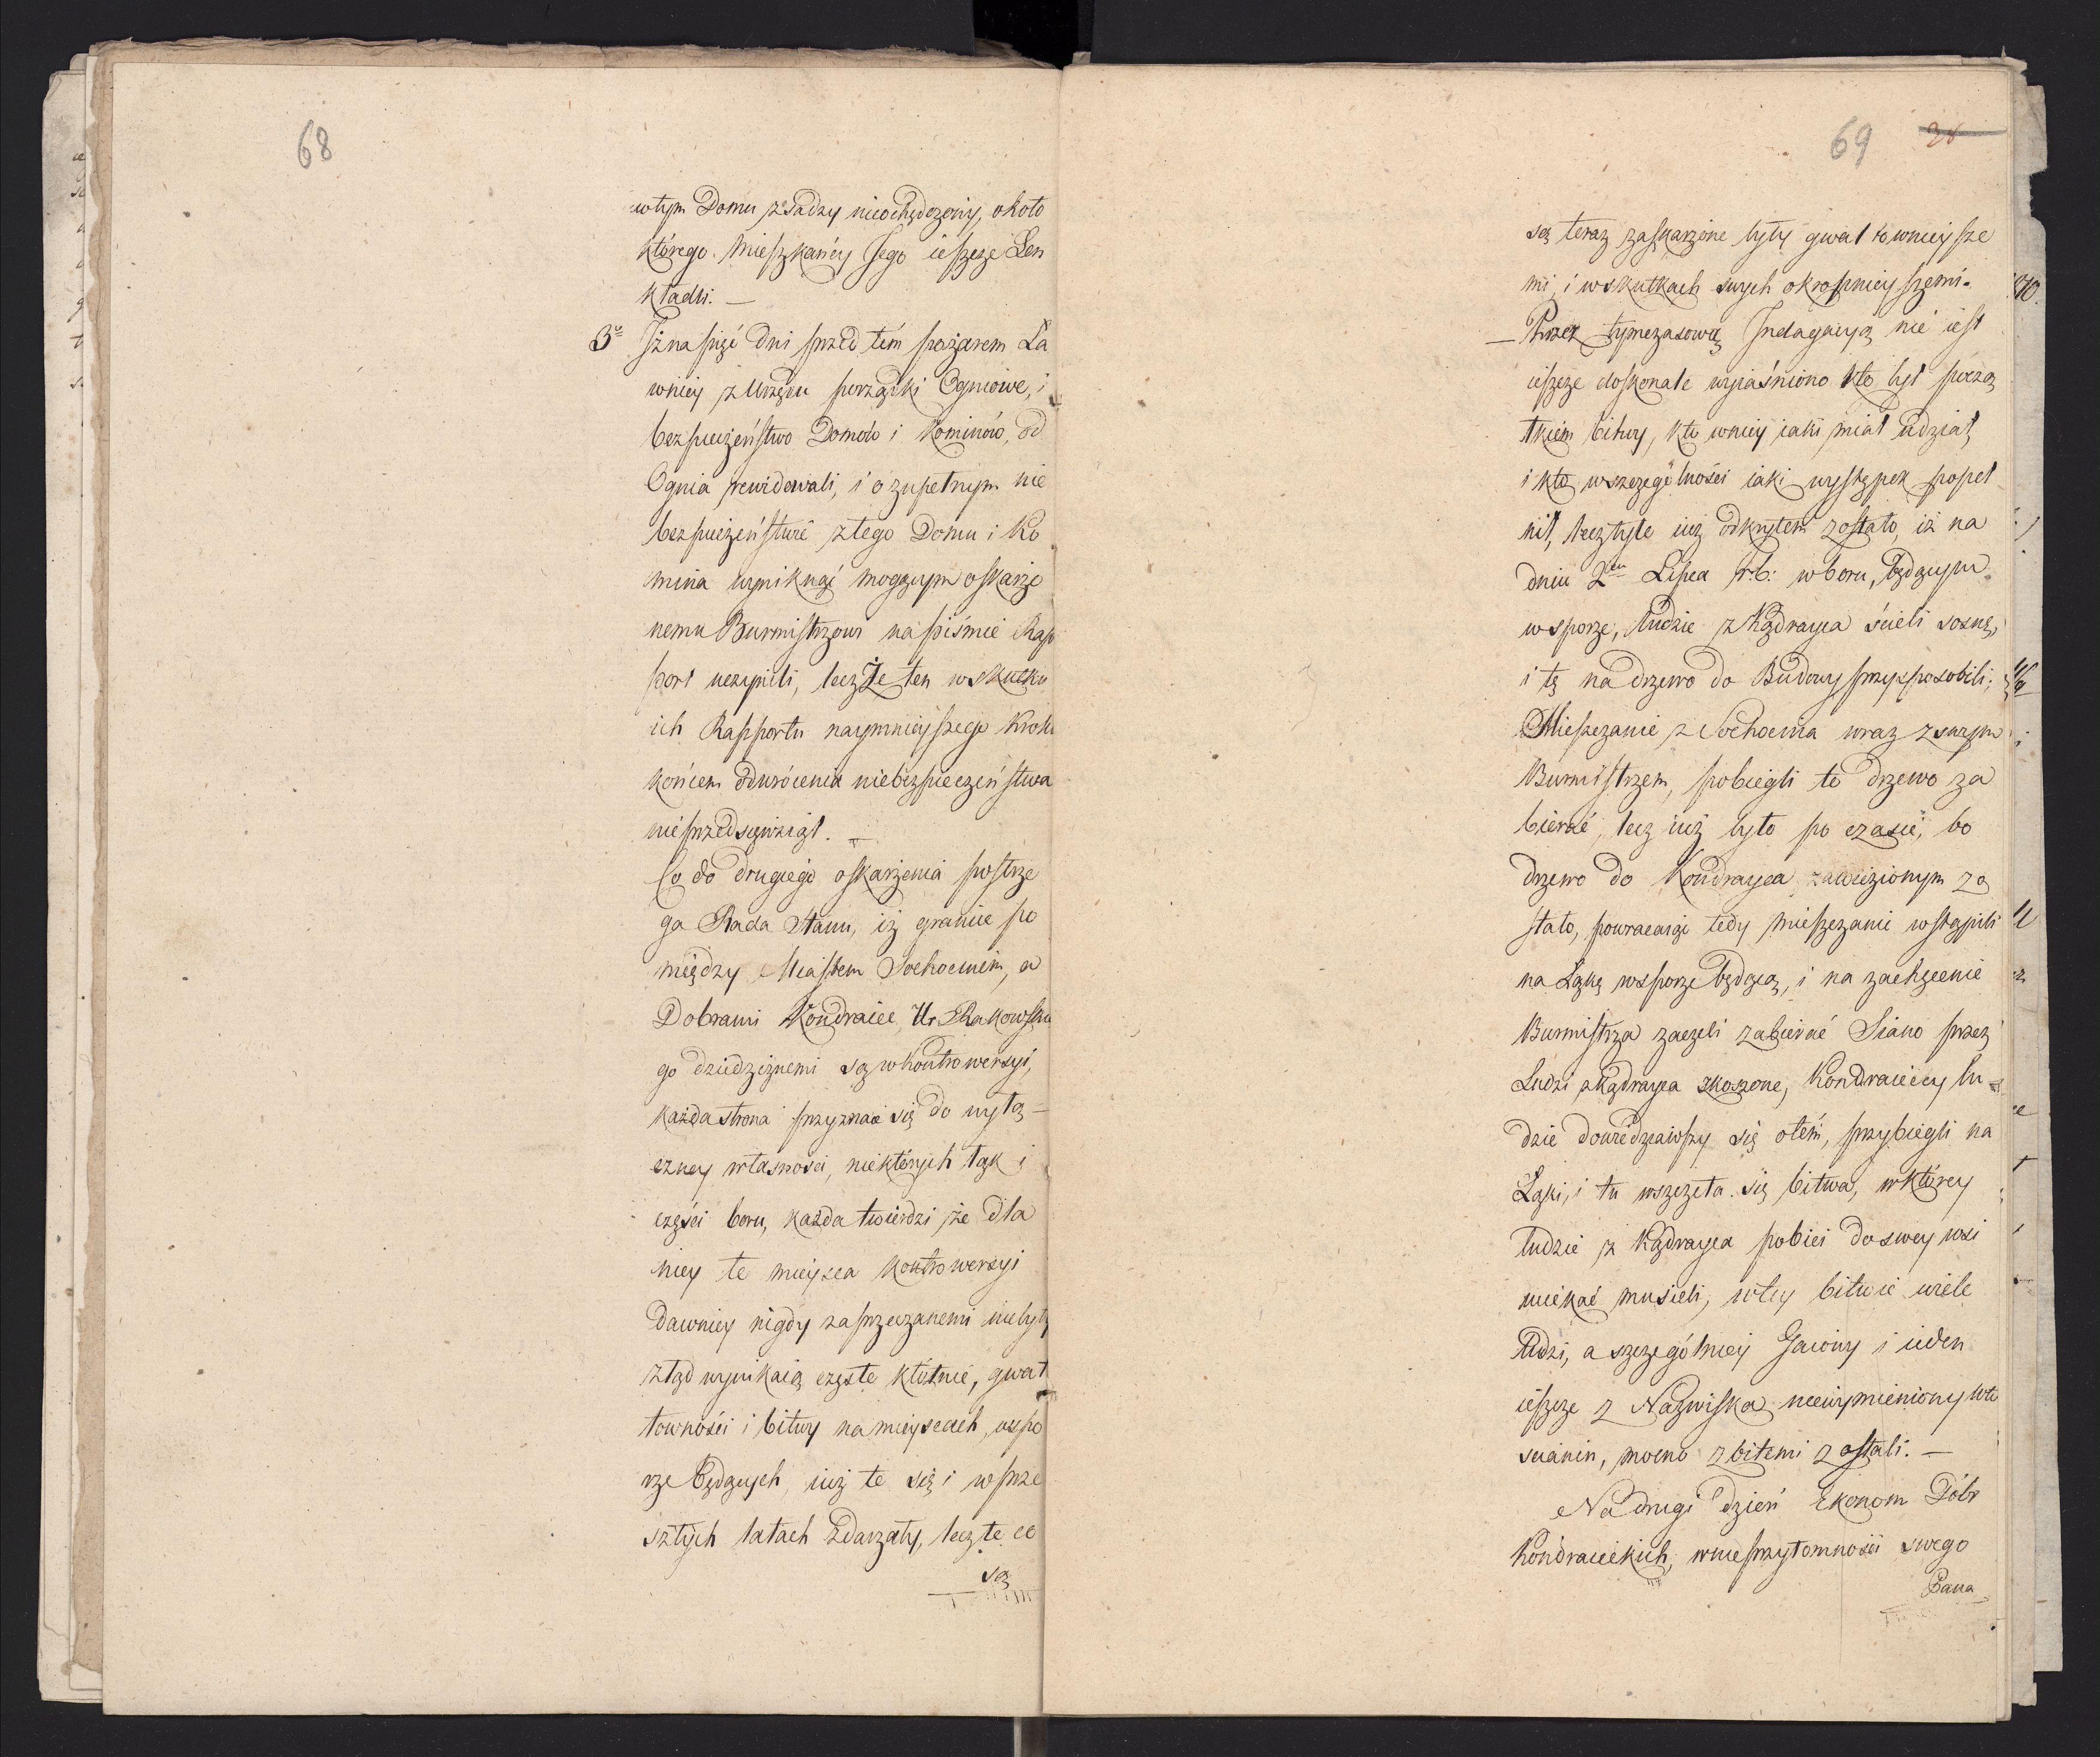 68
wtym Domu z Sadzy nieochędożony, około
którego Mieszkańcy Jego ieszcze Len
kładli. —
3o Iż na pięć dni przed tém pożarem Ła
wnicy z Urzędu porządki Ogniowe, i
bezpieczeństwo Domów i Kominów, od
Ognia rewidowali, i o zupełnym nie
bezpieczeństwie z tego Domu i Ko
mina wyniknąć mogącym oskarżo
nemu Burmistrzowi na piśmie Rap
port uczynili, lecz Że ten w skutku
ich Rapportu naymnieyszego kroku
końcem odwrócenia niebezpieczeństwa
nie przedsięwziął. —
Co do drugiego oskarżenia postrze
ga Rada Stanu, iż granice po
między Miastem Sochocinem, a
Dobrami Kondraiec Ur. Rakowskie
go dziedzicznemi są w kontrowersyi,
każda strona przyznaie się do wyłą-
czney własności, niektórych łąk i
części boru, każda twierdzi że dla
niey te mieysca kontrowersyi
dawniey nigdy zaprzeczanemi nie były
ztąd wynikaią częste kłótnie, gwał
towności i bitwy na mieyscach, w spo
rze będących, iuż te się i w prze
szłych latach zdarzały, lecz te co
są
69 38
są teraz zaskarżone były gwałtownieysze
mi, i w skutkach swych okropnieyszemi.
— Przez tymczasową Indagacyą nie iest
ieszcze doskonale wyiaśniono kto był począ
tkiem bitwy, kto w niey iaki miał udział,
i kto w szczególności iaki występek popeł
nił, lecz tyle iuż odkrytem zostało, iż na
dniu 2go Lipca r.b. w boru, będącym
w sporze, ludzie z Kądrayca ścieli sosnę,
i tę na drzewo do Budowy przysposobili;
Mieszczanie z Sochocina wraz z swym
Burmistrzem, pobiegli to drzewo za
bierać, lecz iuż było po czasie, bo
drzewo do Kondrayca zawiezionym zo
stało, powracaiąc tedy mieszczanie wstąpili
na Łąkę w sporze będącą, i na zachęcenie
Burmistrza zaczeli zabierać Siano przez
Ludzi z Kądrayca skoszone, Kondraieccy lu-
dzie dowiedziawszy się o tém, przybiegli na
Łąki, i tu wszczęła się bitwa, w którey
ludzie z Kądrayca pobici do swey wsi
uciekać musieli, w tey bitwie wiele
ludzi, a szczególniey Gaiowy i ieden
ieszcze z Nazwiska niewymieniony wło
scianin, mocno zbitemi zostali. —
Na drugi dzień Ekonom Dóbr
Kondraieckich, w nieprzytomności swego
Pana